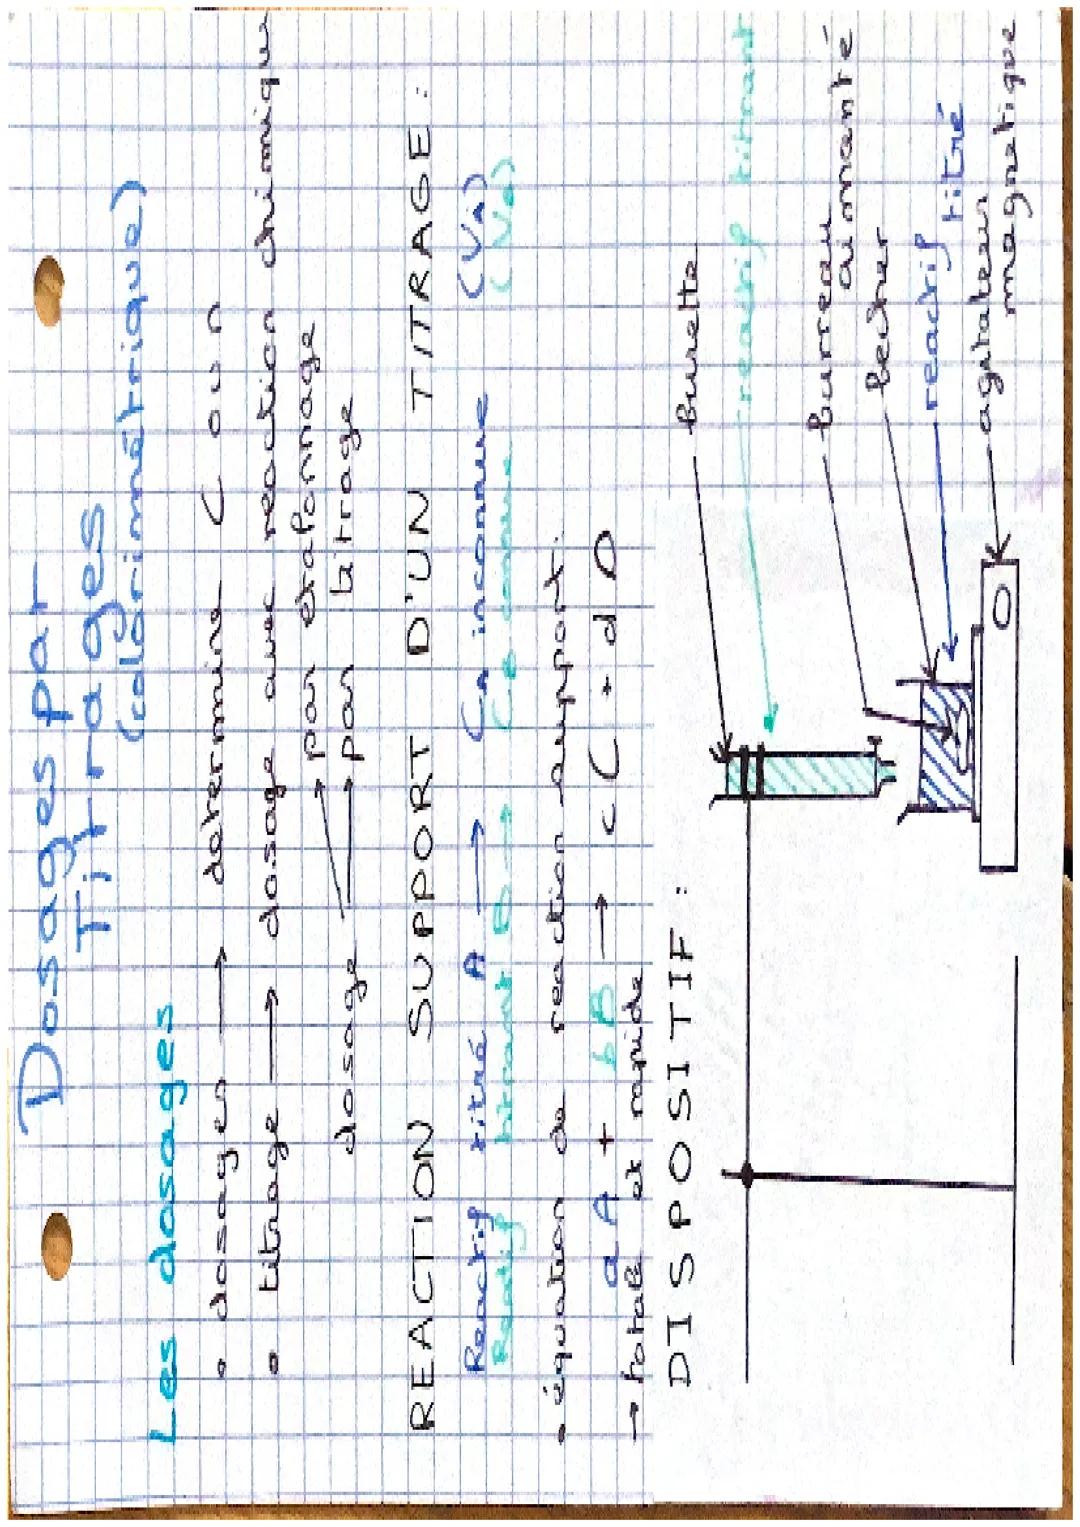 Dosages par
Titrages
(colorimétrique)
Les dosages
• dosages → determine C ou n
• titrage → dosage avec reaction chimique
dosage → par etalonnage
→ par titrage
REACTION SUPPORT D'UN TITRAGE :
Reactif titré A → CA inconnue (VA)
Reactif titrant B → CB connue (VB)
• équation de reaction support.
aA + bB → cC + dD
→ totale et rapide
DISPOSITIF :
burette
reactif titrant
burreau
aimanté
becher
reactif titré
agitateur
magnetique